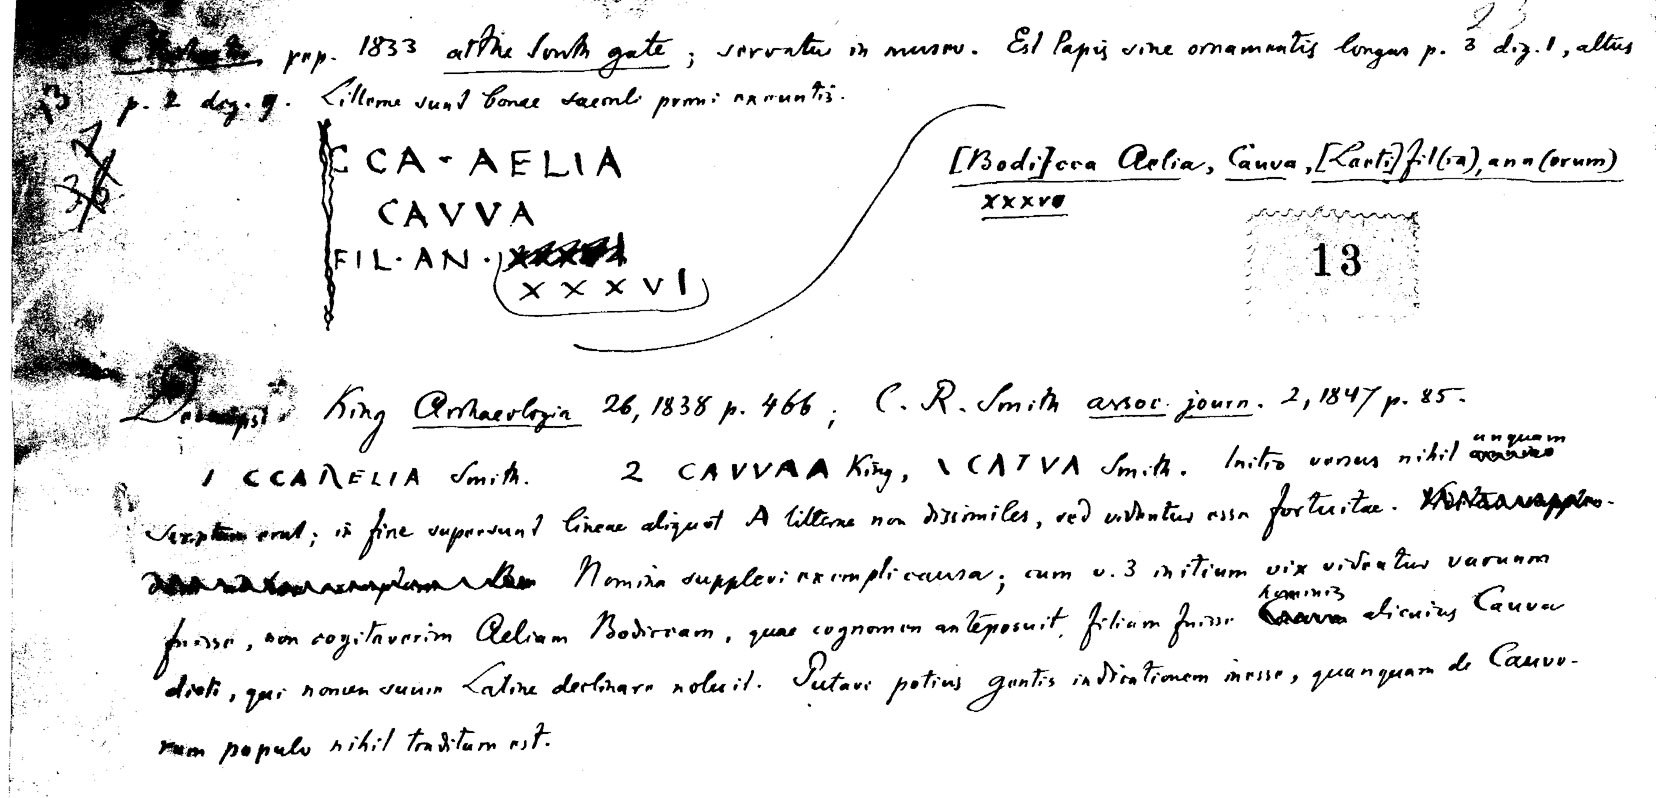 23
rep. 1833 at the South gate; servatur in museo. Est lapis sine ornamentis longus p. 3 dig. 1, altus
p. 2 dig. 9. Litterae sunt bonae saeculi primi exeuntis.
13
CCA - AELIA
CAVVA
FIL · AN ·
XXXVI
[Bodi]cca Aelia, Cauva, [Laeti] fil(ia), ann(orum)
xxxvi
13
Descripsi. King Archaeologia 26, 1838 p. 466; C. R. Smith assoc. journ. 2, 1847 p. 85.
1 CCAAELIA Smith. 2 CAVVAA King, \ CATVA Smith. Initio versus nihil unquam
scriptum erat; in fine supersunt lineae aliquot A litterae non dissimiles, sed videntur esse fortuitae.
Nomina supplevi exempli causa; cum v. 3 initium vix videatur vacuum
fuisse, non cogitaverim Aeliam Bodiccam, quae cognomen anteposuit, filiam fuisse hominis alicuius Cauva
dicti, qui nomen suum Latine declinare noluit. Putavi potius gentis indicationem inesse, quanquam de Cauvo-
rum populo nihil traditum est.